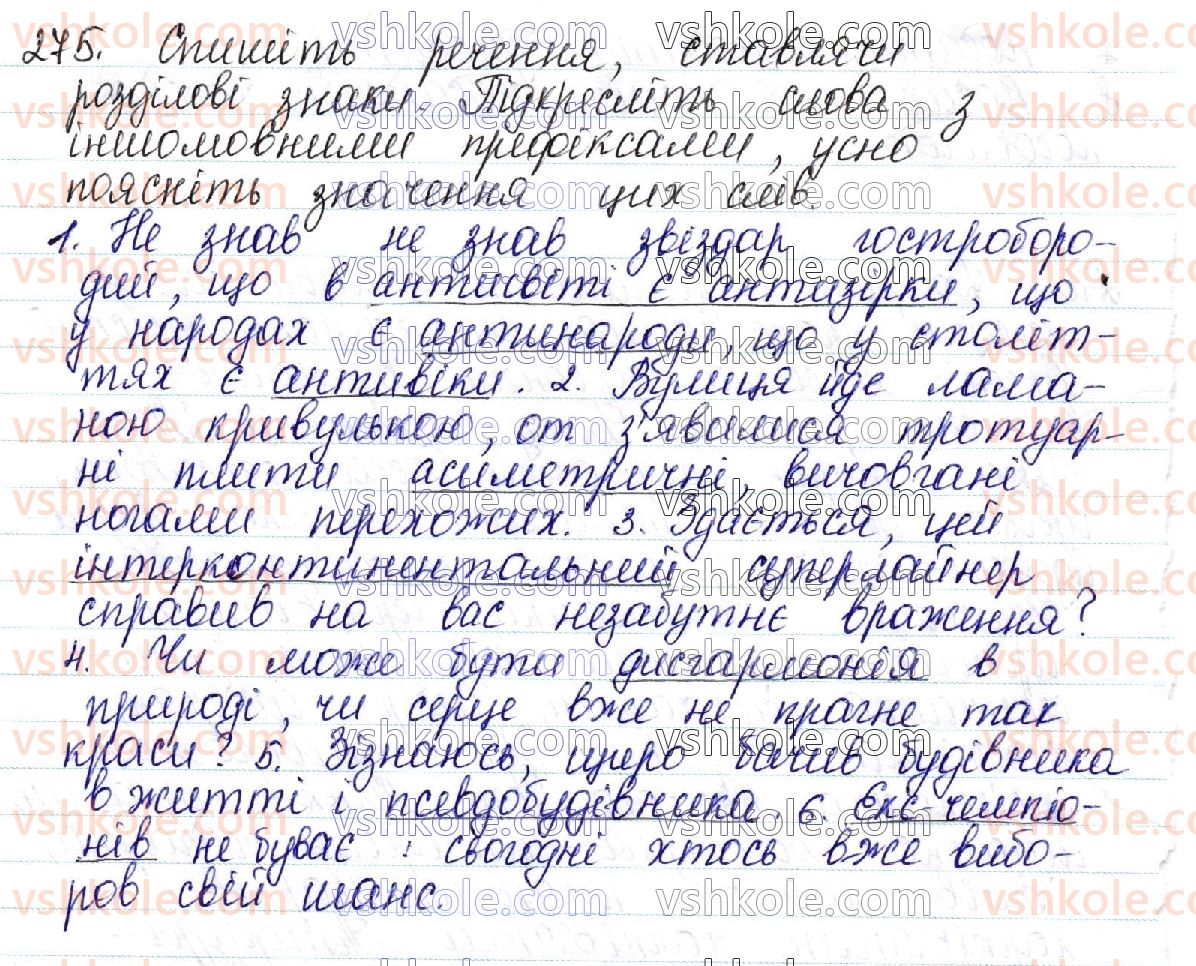 275. Спишіть речення, ставлячи
розділові знаки. Підкресліть слова з
іншомовними префіксами, усно
поясніть значення цих слів.
1. Не знав не знав звіздар гостроборо-
дий, що в антисвіті є антизірки, що
у народах є антинароди, що у століт-
тях є антивіки. 2. Вулиця йде лама-
ною кривулькою, от з'явилися тротуар-
ні плити асиметричні, вичовгані
ногами перехожих. 3. Здається, цей
інтерконтинентальний суперлайнер
справив на вас незабутнє враження?
4. Чи може бути дисгармонія в
природі, чи серце вже не прагне так
краси? 5. Зізнаюсь, щиро бачив будівника
в житті і псевдобудівника. 6. Екс-чемпіо-
нів не буває : сьогодні хтось вже вибо-
ров свій шанс.
vshkole.com